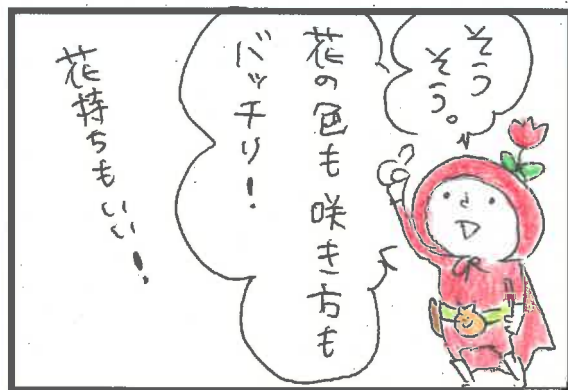 そう
そう。
花の色も咲き方も
バッチリ！
花持ちもいい！
GR